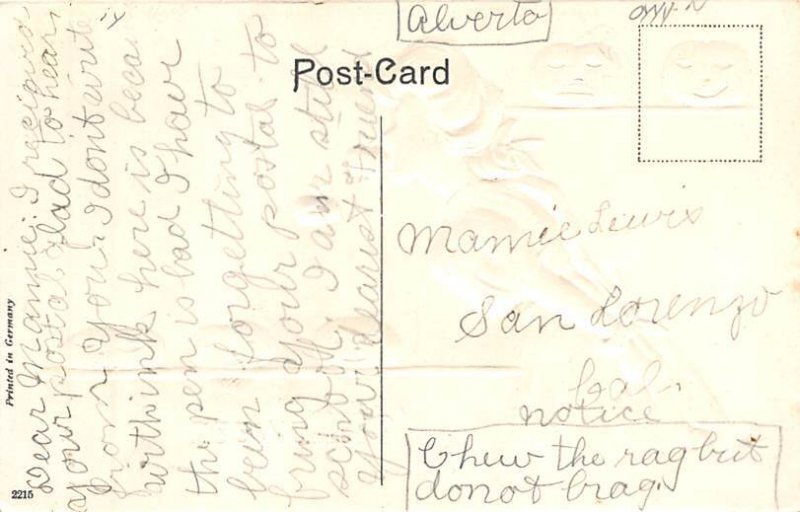 Alverta
Post-Card
Dear Mamie: I recieved
your postal. Glad to hear
from you. I dont write
with ink here is becau
the pen is bad I have
ben forgetting to
bring your postal to
school. I am still
your dearest friend
Mamie Lewis
San Lorenzo
Cal.
notice
Chew the rag but
donot brag.
Printed in Germany
2215